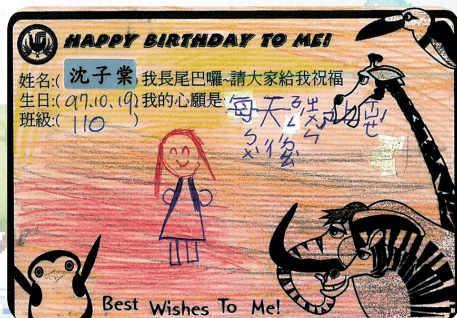 HAPPY BIRTHDAY TO ME!
姓名:( 沈子棠 ) 我長尾巴囉~請大家給我祝福
生日:( 97.10.19 ) 我的心願是:
班級:( 110 )
每天
Best Wishes To Me!